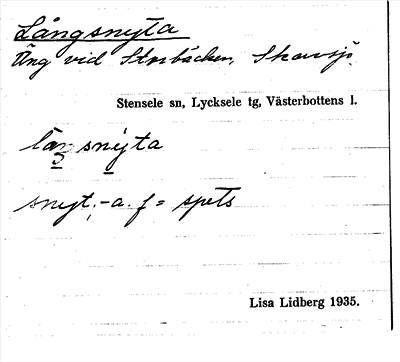 Långsnyta
Äng vid Storbäcken, Skarvsjö.
Stensele sn, Lycksele tg, Västerbottens l.
långsnyta
snyt, -a. f = spets
Lisa Lidberg 1935.